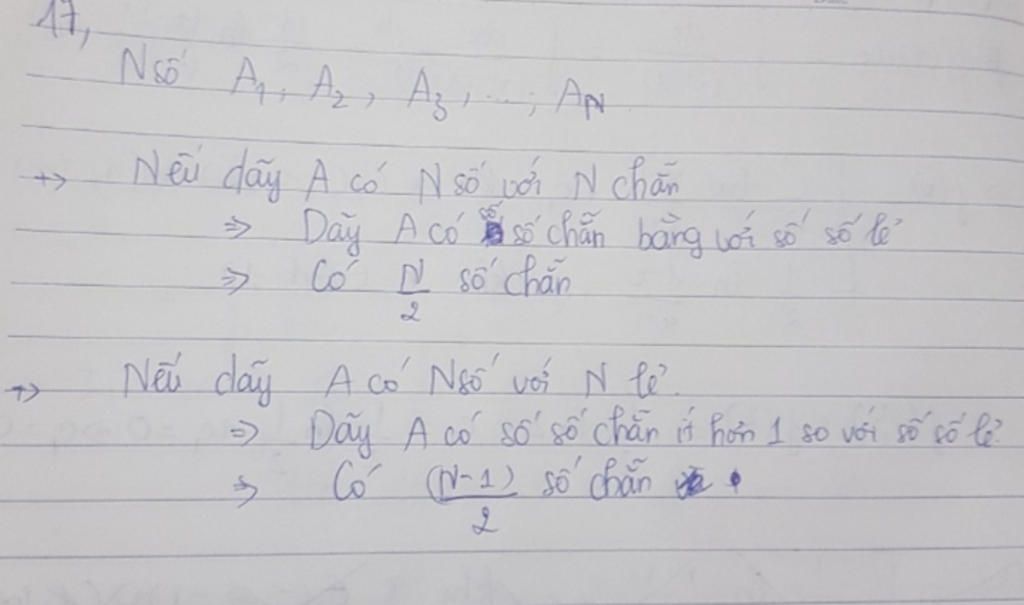 17,
N số A1, A2, A3, ...; AN
+> Nếu dãy A có N số với N chẵn
=> Dãy A có số số chẵn bằng với số số lẻ
=> Có N/2 số chẵn
+> Nếu dãy A có N số với N lẻ.
=> Dãy A có số số chẵn ít hơn 1 so với số số lẻ.
=> Có (N-1)/2 số chẵn.